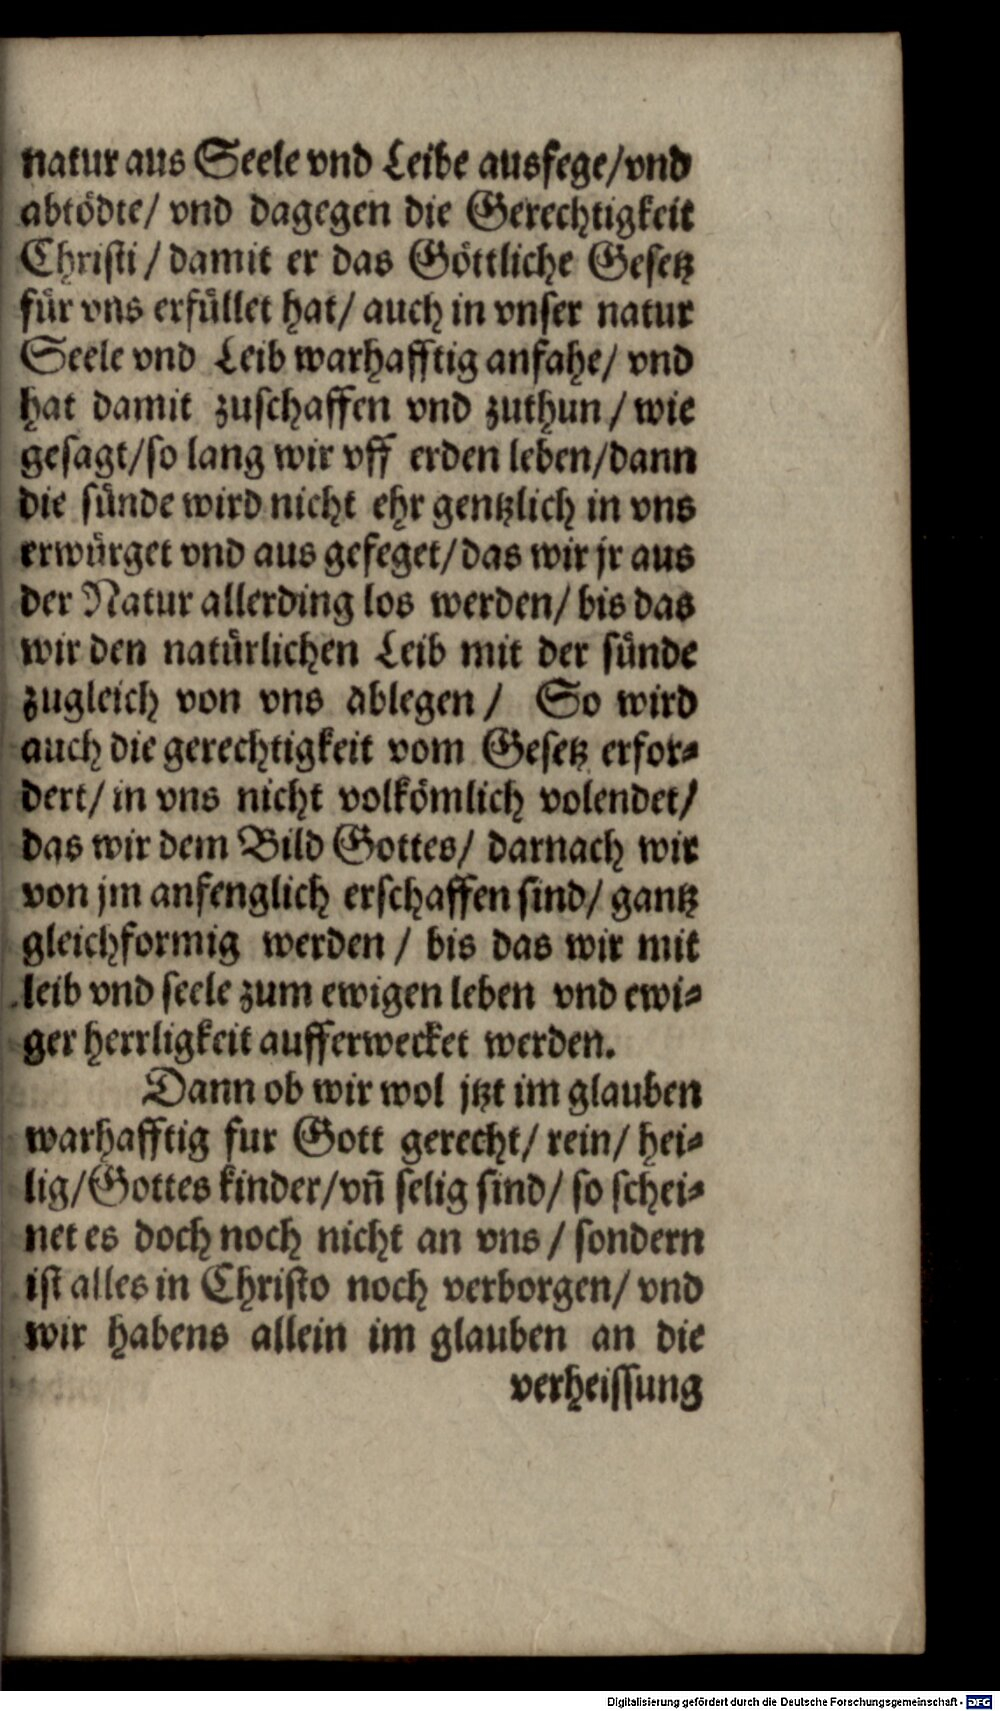 natur aus Seele vnd Leibe ausfege/vnd
abtödte/ vnd dagegen die Gerechtigkeit
Christi / damit er das Göttliche Gesetz
für vns erfüllet hat/ auch in vnser natur
Seele vnd Leib warhafftig anfahe/ vnd
hat damit zuschaffen vnd zuthun / wie
gesagt/so lang wir vff erden leben/dann
die sünde wird nicht ehr gentzlich in vns
erwürget vnd aus gefeget/das wir jr aus
der Natur allerding los werden/ bis das
wir den natürlichen Leib mit der sünde
zugleich von vns ablegen / So wird
auch die gerechtigkeit vom Gesetz erfor⸗
dert/ in vns nicht volkömlich volendet/
das wir dem Bild Gottes/ darnach wir
von jm anfenglich erschaffen sind/ gantz
gleichformig werden / bis das wir mit
leib vnd seele zum ewigen leben vnd ewi⸗
ger herrligkeit aufferwecket werden.
Dann ob wir wol jtzt im glauben
warhafftig fur Gott gerecht/ rein/ hei⸗
lig/Gottes kinder/vñ selig sind/ so schei⸗
net es doch noch nicht an vns / sondern
ist alles in Christo noch verborgen/ vnd
wir habens allein im glauben an die
verheissung
Digitalisierung gefördert durch die Deutsche Forschungsgemeinschaft - DFG